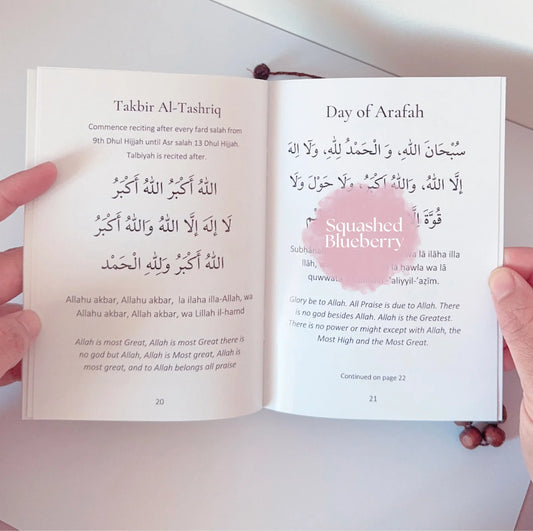 Takbir Al-Tashriq
Commence reciting after every fard salah from
9th Dhul Hijjah until Asr salah 13 Dhul Hijjah.
Talbiyah is recited after.
اللهُ أَكْبَرُ اللهُ أَكْبَرُ
لَا إِلَهَ إِلَّا اللهُ وَاللهُ أَكْبَرُ
اللهُ أَكْبَرُ وَلِلّٰهِ الْحَمْد
Allahu akbar, Allahu akbar,  la ilaha illa-Allah, wa
Allahu akbar, Allah akbar, wa Lillah il-hamd
Allah is most Great, Allah is most Great there is
no god but Allah, Allah is Most great, Allah is
most great, and to Allah belongs all praise
20
Day of Arafah
سُبْحَانَ اللهِ، وَ الْحَمْدُ لِلّٰهِ، وَلَا إِلهَ
إِلَّا اللهُ، وَاللهُ اَكْبَرُ، وَلَا حَوْلَ وَلَا
قُوَّةَ
Squashed
Blueberry
wa lā ilāha illa
hawla wa lā
quwwata 'aliyyil-'azīm.
Glory be to Allah. All Praise is due to Allah. There
is no god besides Allah. Allah is the Greatest.
There is no power or might except with Allah, the
Most High and the Most Great.
Continued on page 22
21